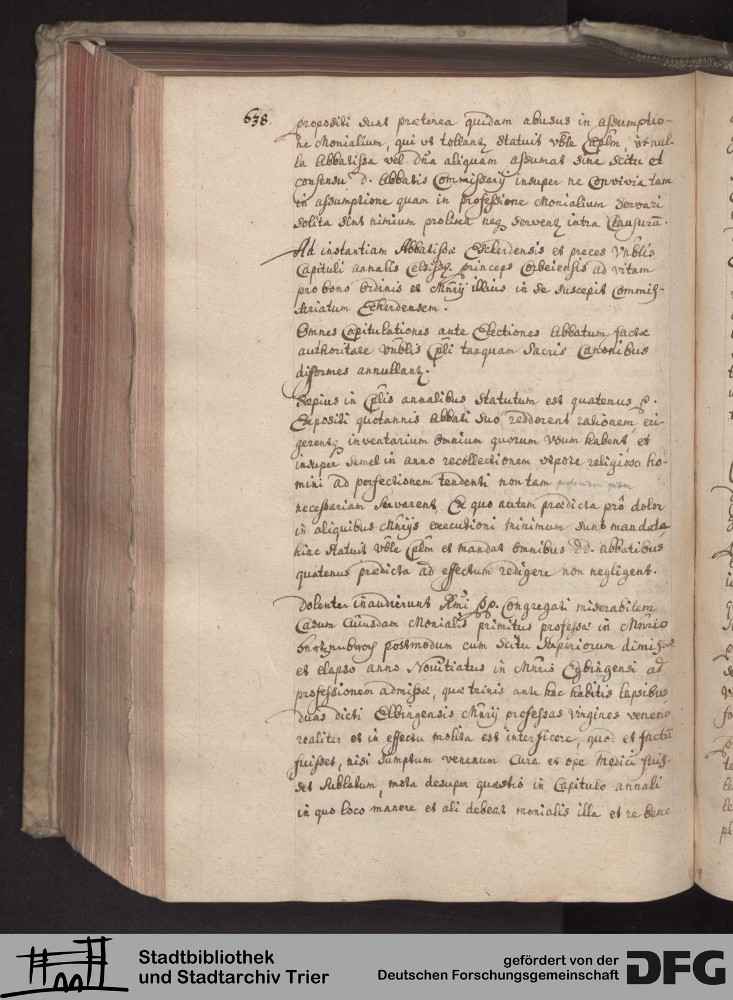 638.
propositi sunt præterea quidam abusus in assumptio-
ne Monialium, qui ut tollantr statuit vble Caplm, ut nul-
la Abbatissa vel Dna aliquam assumat sine scitu et
consensu D. Abbatis Commissarij insuper ne Convivia tam
in assumptione quam in professione Monialium servari
solita sint nimium prolixa neq serventr intra Clausurã.
Ad instantiam Abbatissæ Escherdensis et preces Vnblis
Capituli annalis Celsissq. princeps Corbeiensis ad vitam
pro bono Ordinis et Mnrij illius in se suscepit Commis-
sariatum Escherdensem.
Omnes Capitulationes ante Electiones Abbatum factæ
authoritate vnblis Cpli tanquam Sacris Canonibus
difformes annullantr.
Sæpius in Cplis annalibus statutum est quatenus p.
Expositi quotannis Abbati suo redderent rationem, eri-
gerentq inventarium omnium quorum vsum habent, et
insuper semel in anno recollectionem utpote religioso ho-
mini ad perfectionem tendenti non tam
necessariam servarent, Ex quo autem prædicta prô dolor
in aliquibus Mnrijs executioni minimum sunt mandata
hinc statuit vble Cplm et mandat omnibus DD. Abbatibus
quatenus prædicta ad effectum redigere non negligent.
Dolenter inaudierunt Rmi pp. Congregati miserabilem
Casum Cuiusdam Monialis primitus professæ in Mnrio
postmodum cum scitu Superiorum dimissæ
et elapso anno Novitiatus in Mnrio Egbingensi ad
professionem admissæ, quæ trinis ante hac habitis lapsibus
duas dicti Elbingensis Mnrij professas virgines veneno
realiter et in effectu molita est interficere, quod et factũ
fuisset, nisi sumptum venenum cura et ope Medici fuis-
set sublatum, mota desuper quæstio in Capitulo annali
in quo loco manere et ali debeat monialis illa et re bene
Stadtbibliothek
und Stadtarchiv Trier
gefördert von der
Deutschen Forschungsgemeinschaft
DFG